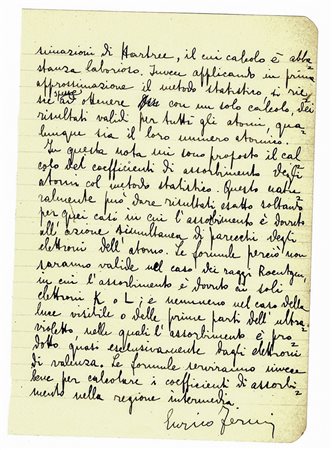 simazioni di Hartree, il cui calcolo è abba-
stanza laborioso. Invece applicando in prima
approssimazione il metodo statistico, si rie-
sce ad ottenere con un solo calcolo, dei
risultati validi per tutti gli atomi, qua-
lunque sia il loro numero atomico.
In questa nota mi sono proposto il cal-
colo dei coefficienti di assorbimento degli
atomi col metodo statistico. Questo natu-
ralmente può dare risultati esatto soltanto
per quei casi in cui l'assorbimento è dovuto
all'azione simultanea di parecchi degli
elettroni dell'atomo. Le formule perciò non
saranno valide nel caso dei raggi Roentgen,
in cui l'assorbimento è dovuto ai soli
elettroni K o L; e nemmeno nel caso della
luce visibile o delle prime parti dell'ultra-
violetto, nelle quali l'assorbimento è pro-
dotto quasi esclusivamente dagli elettroni
di valenza. Le formule serviranno invece
bene per calcolare i coefficienti di assorbi-
mento nella regione intermedia.
Enrico Fermi